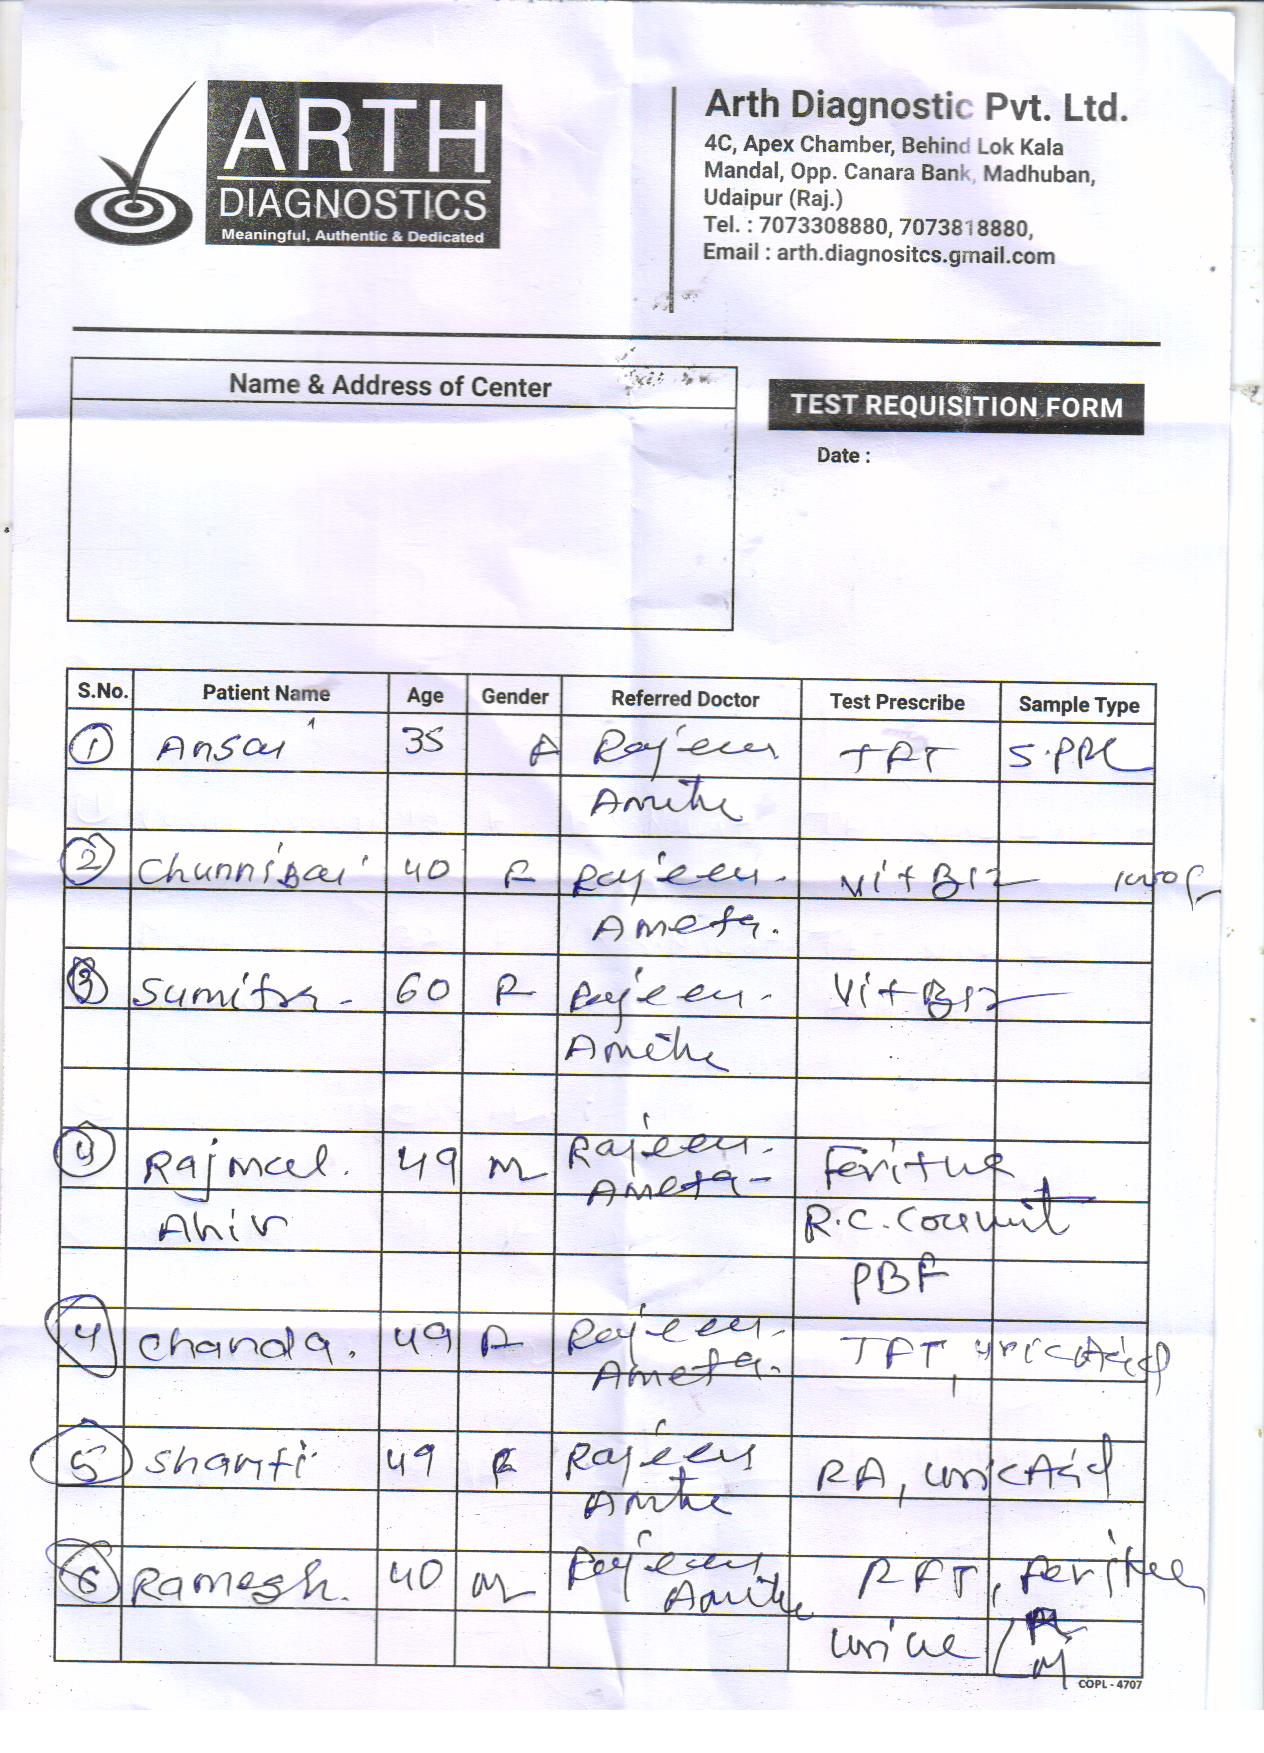 ARTH
DIAGNOSTICS
Meaningful, Authentic & Dedicated
Arth Diagnostic Pvt. Ltd.
4C, Apex Chamber, Behind Lok Kala
Mandal, Opp. Canara Bank, Madhuban,
Udaipur (Raj.)
Tel. : 7073308880, 7073818880,
Email : arth.diagnositcs.gmail.com
Name & Address of Center
TEST REQUISITION FORM
Date :
S.No. Patient Name Age Gender Referred Doctor Test Prescribe Sample Type
1 Ansar 35 Rajeev TFT
2 Chunnibai 40 F Rajeev Vit B12
Ameta.
3 Sumitra 60 F Rajeev Vit B12
4 Rajmal. 49 M Rajeev Feritine
Ameta
Ahir R.C. Count
PBF
4 Chanda. 49 F Rajeev TFT, uric Acid
Ameta.
5 Shanti 49 F Rajeev RA, uric Acid
6 Ramesh. 40 M Rajeev RFT,
urine
COPL - 4707